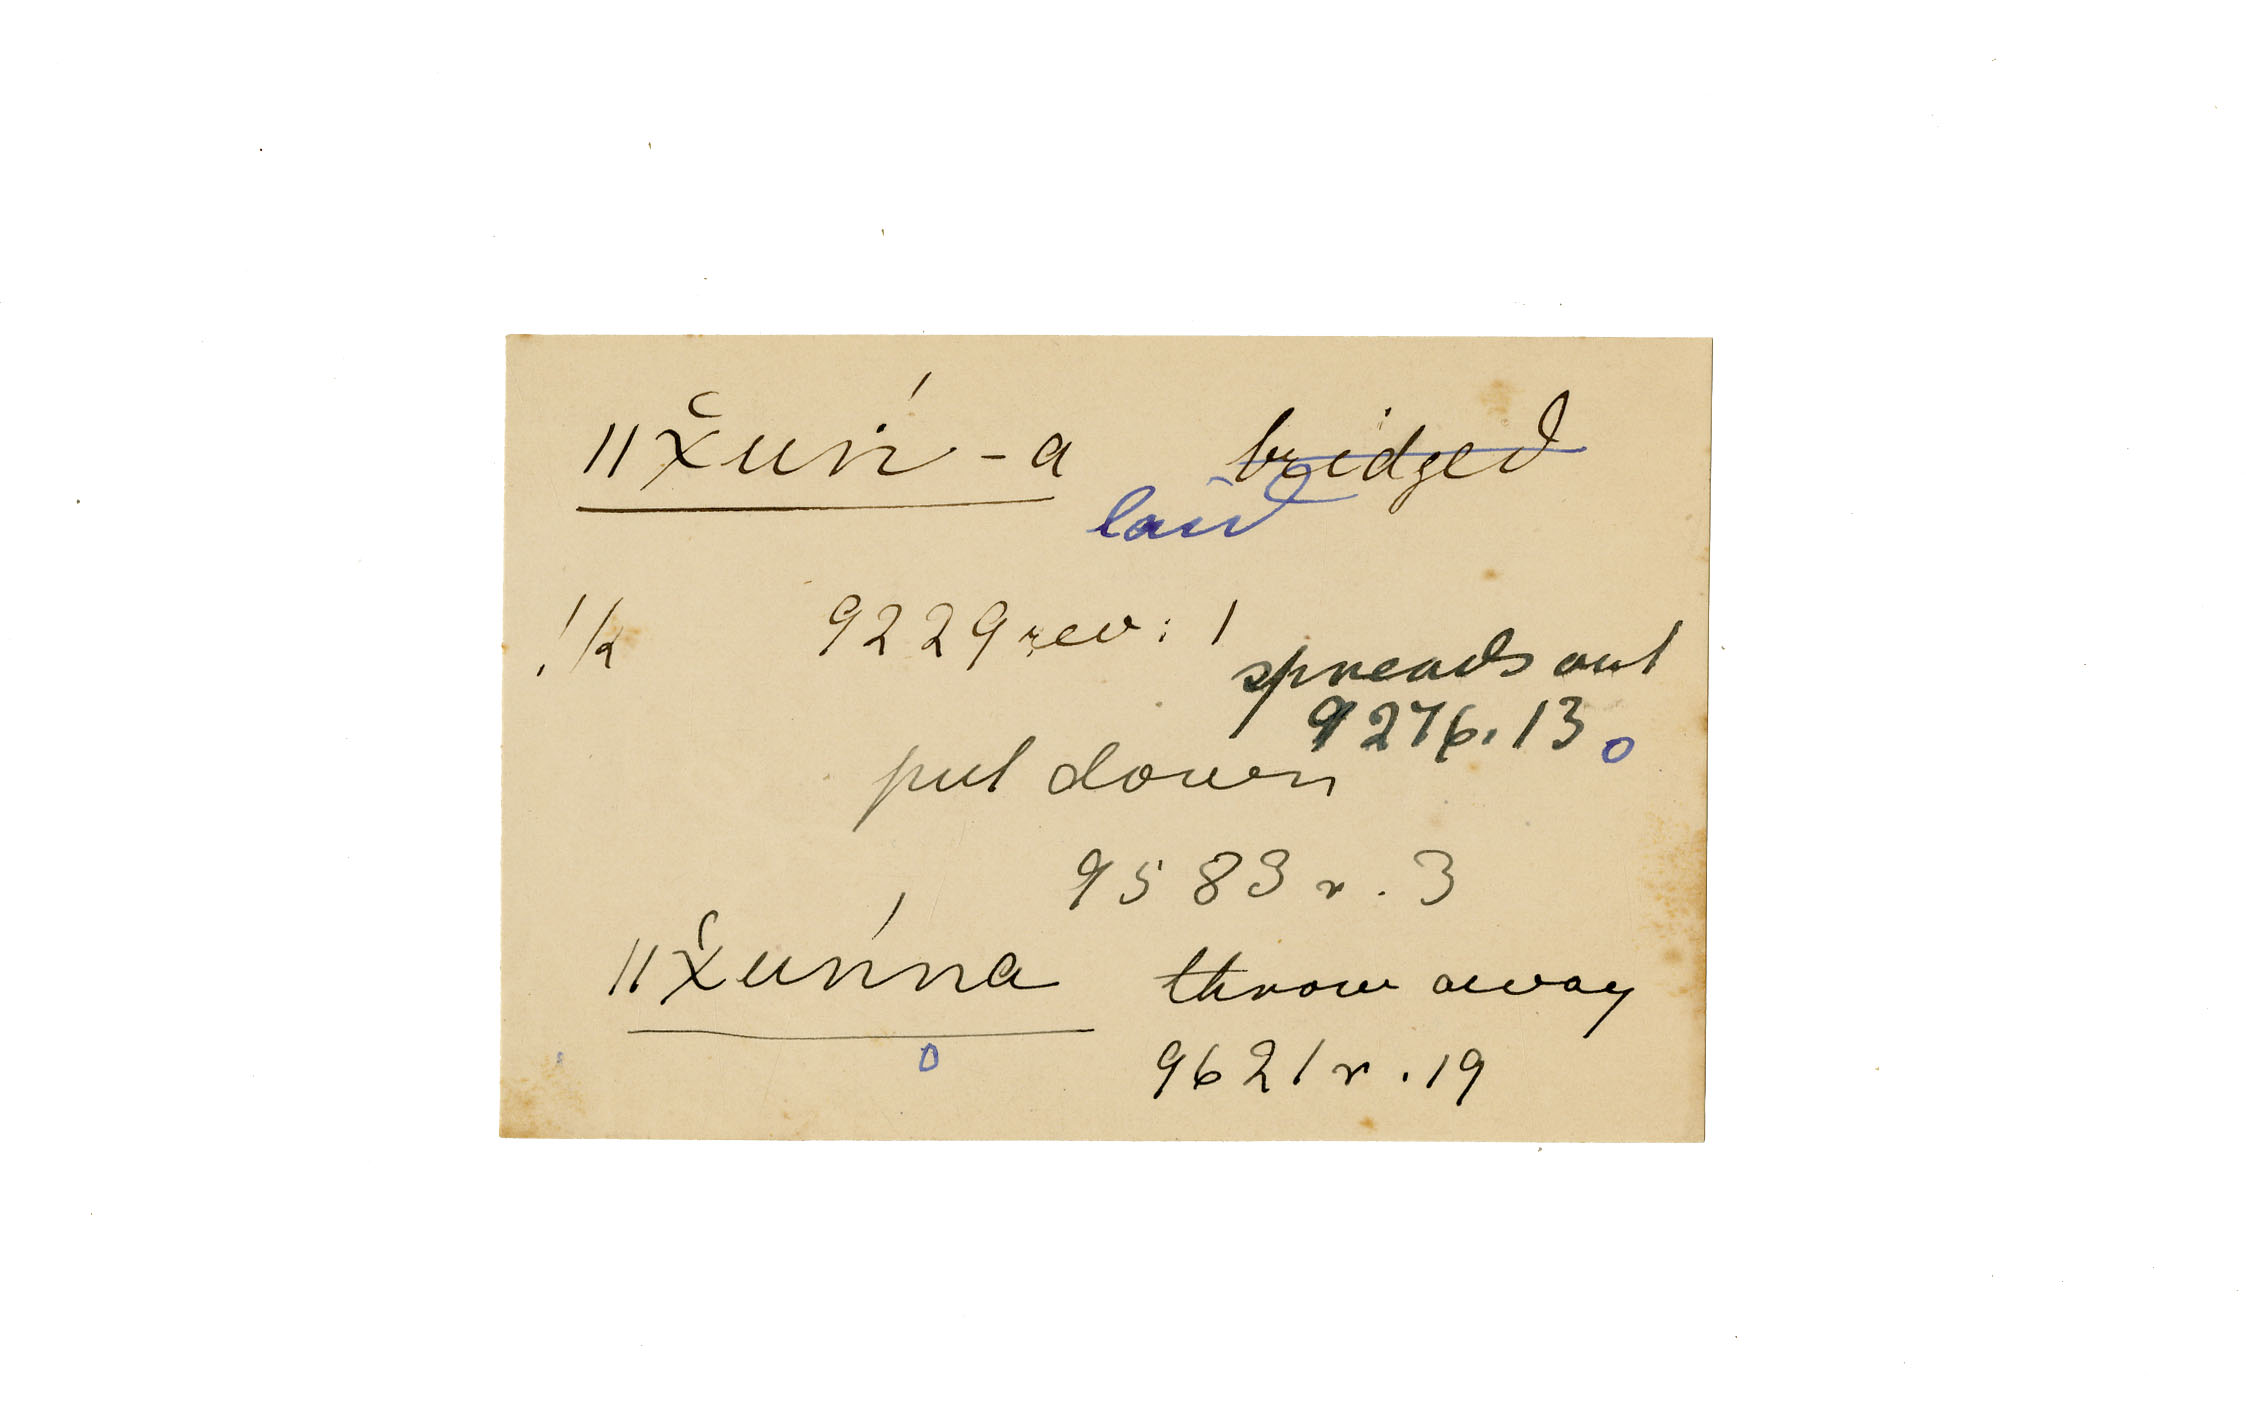 ǁχ̆uṅ́-a bridged
laid
!k 9229 rev: 1
spreads out
9276.13 o
put down
9583 r. 3
ǁχ̆uṅ́na throw away
o 9621 r. 19